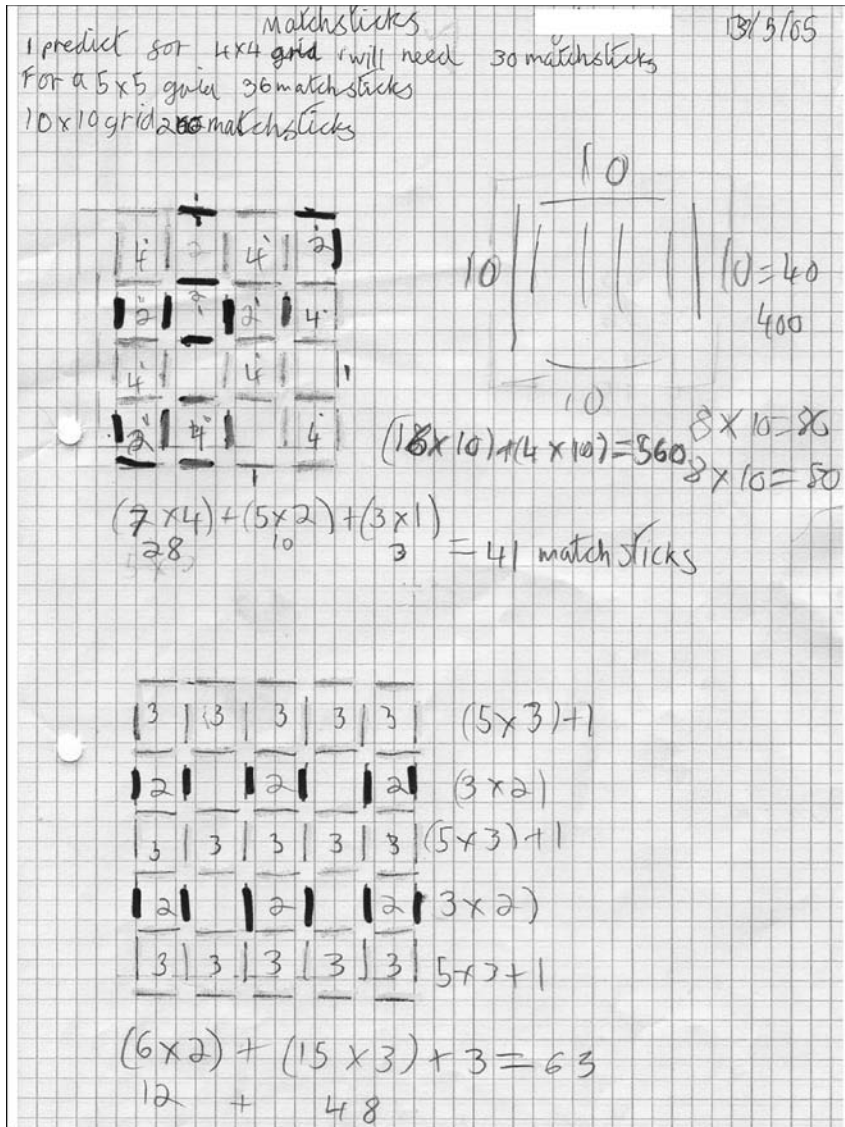 matchsticks
13/5/05
I predict for 4x4 grid i will need 30 matchsticks
For a 5x5 grid 36 matchsticks
10x10 grid matchsticks
10
10 10=40
400
10
4 2 4 2
2 1 2 4
4 4
2 4 4
1
1
(16x10)+(4x10)=560
8x10=80
8x10=80
(7x4)+(5x2)+(3x1)
28 10 3 =41 matchsticks
3 3 3 3 3 (5x3)+1
2 2 2 (3x2)
3 3 3 3 3 (5x3)+1
2 2 2 3x2)
3 3 3 3 3 5x3+1
(6x2) + (15x3) + 3 = 63
12 + 48